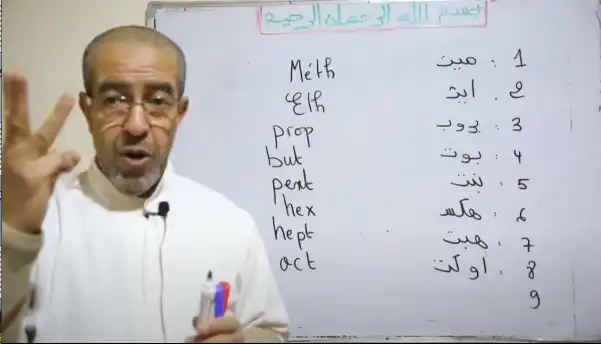 بسم الله الرحمان الرحيم
Méth ميت : 1
Eth ايت . 2
prop بروب : 3
but بوت : 4
pent بنت : 5
hex هكس : 6
hept هبت : 7
oct اوكت : 8
9